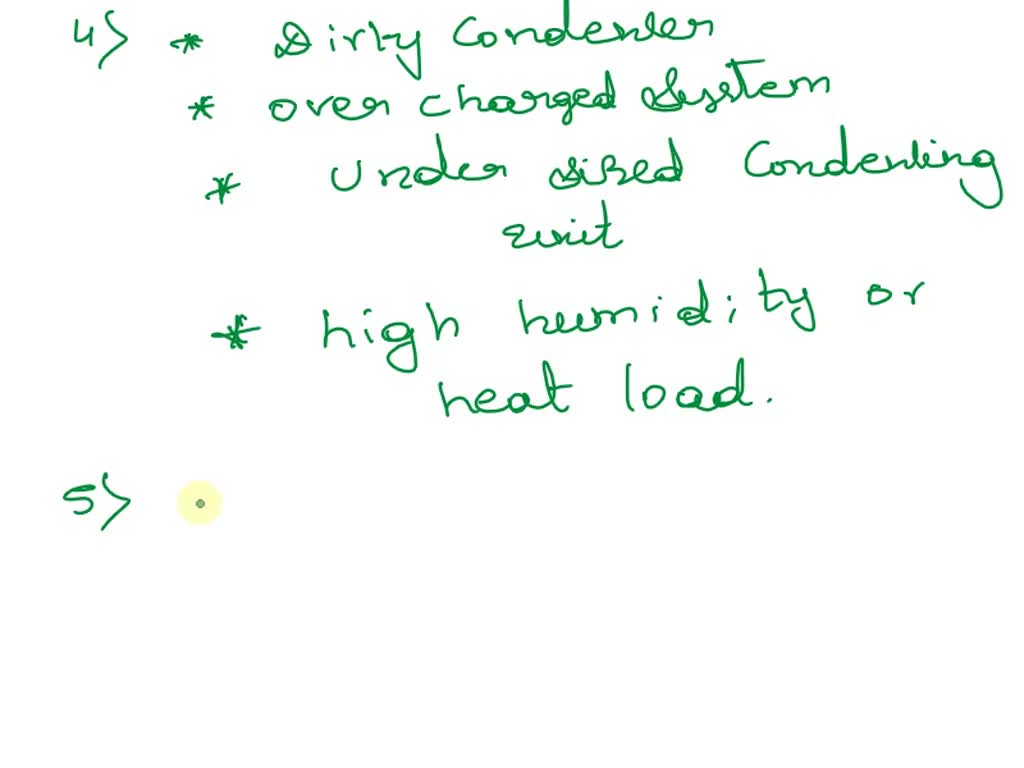 4> * Dirty Condenser
* over charged system
* under sized Condensing
unit
* high humidity or
heat load.
5>